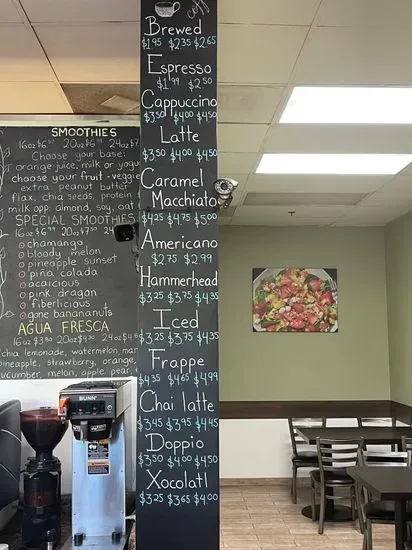 coff
Brewed
$1.95 $2.35 $2.65
Espresso
$1.99 $2.50
Cappuccino
$3.50 $4.00 $4.50
Latte
$3.50 $4.00 $4.50
Caramel
Macchiato
$4.25 $4.75 $5.00
Americano
$2.75 $2.99
Hammerhead
$3.25 $3.75 $4.35
Iced
$3.25 $3.75 $4.35
Frappe
$4.35 $4.65 $4.99
Chai latte
$3.45 $3.95 $4.45
Doppio
$3.50 $4.00 $4.50
Xocolatl
$3.25 $3.65 $4.00
SMOOTHIES
16oz $6.99 20oz $6.99 24oz $7
Choose your base:
orange juice, milk or yogu
choose your fruit - veggie
extra: peanut butter
flax, chia seeds, protein
milk opp: almond, soy, oat
SPECIAL SMOOTHIES
16oz $6.99 20oz $7.50 24oz
chamango
bloody melon
pineapple sunset
piña colada
acaicious
pink dragon
fiberlicious
gone bananauts
AGUA FRESCA
16oz $3.80 20oz $4.30 24oz $4.8
chia lemonade, watermelon, man
pineapple, strawberry, orange,
cucumber, melon, apple, pear,
BUNN